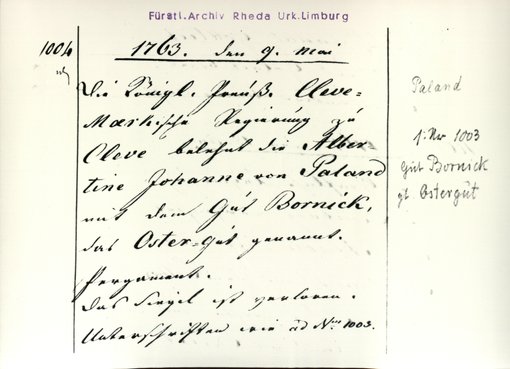 Fürstl. Archiv Rheda Urk. Limburg
1004
1763. den 9. Mai
Die Königl. Preuß. Cleve-
Märkische Regierung zu
Cleve belehnt die Alber
tine Johanne von Paland
mit dem Gut Bornick,
das Oster-gut genannt.
Pergament.
Das Siegel ist verloren.
Unterschriften wie ad N. 1003.
Paland
1: Nr 1003
Gut Bornick
gt. Ostergut